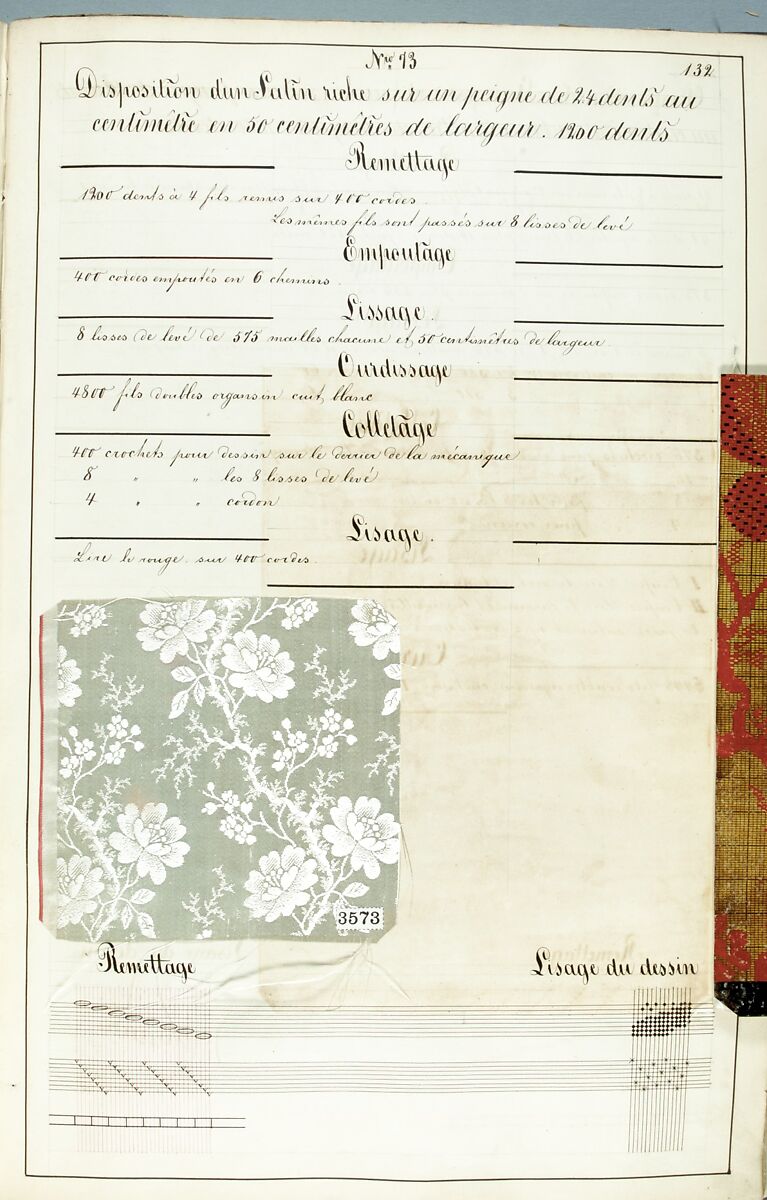 Nro 73
132
Disposition d'un Satin riche sur un peigne de 24 dents au
centimètre en 50 centimètres de largeur. 1200 dents
Remettage
1200 dents à 4 fils remis sur 400 cordes.
Les mêmes fils sont passés sur 8 lisses de levé
Empoutage
400 cordes empoutés en 6 chemins.
Lissage.
8 lisses de levé de 575 mailles chacune et 50 centimètres de largeur.
Ourdissage
4800 fils doubles organsin cuit blanc
Colletage
400 crochets pour dessin sur le derrier de la mécanique
8 " " les 8 lisses de levé
4 " " cordon
Lisage.
Lire le rouge sur 400 cordes.
3573
Remettage
Lisage du dessin